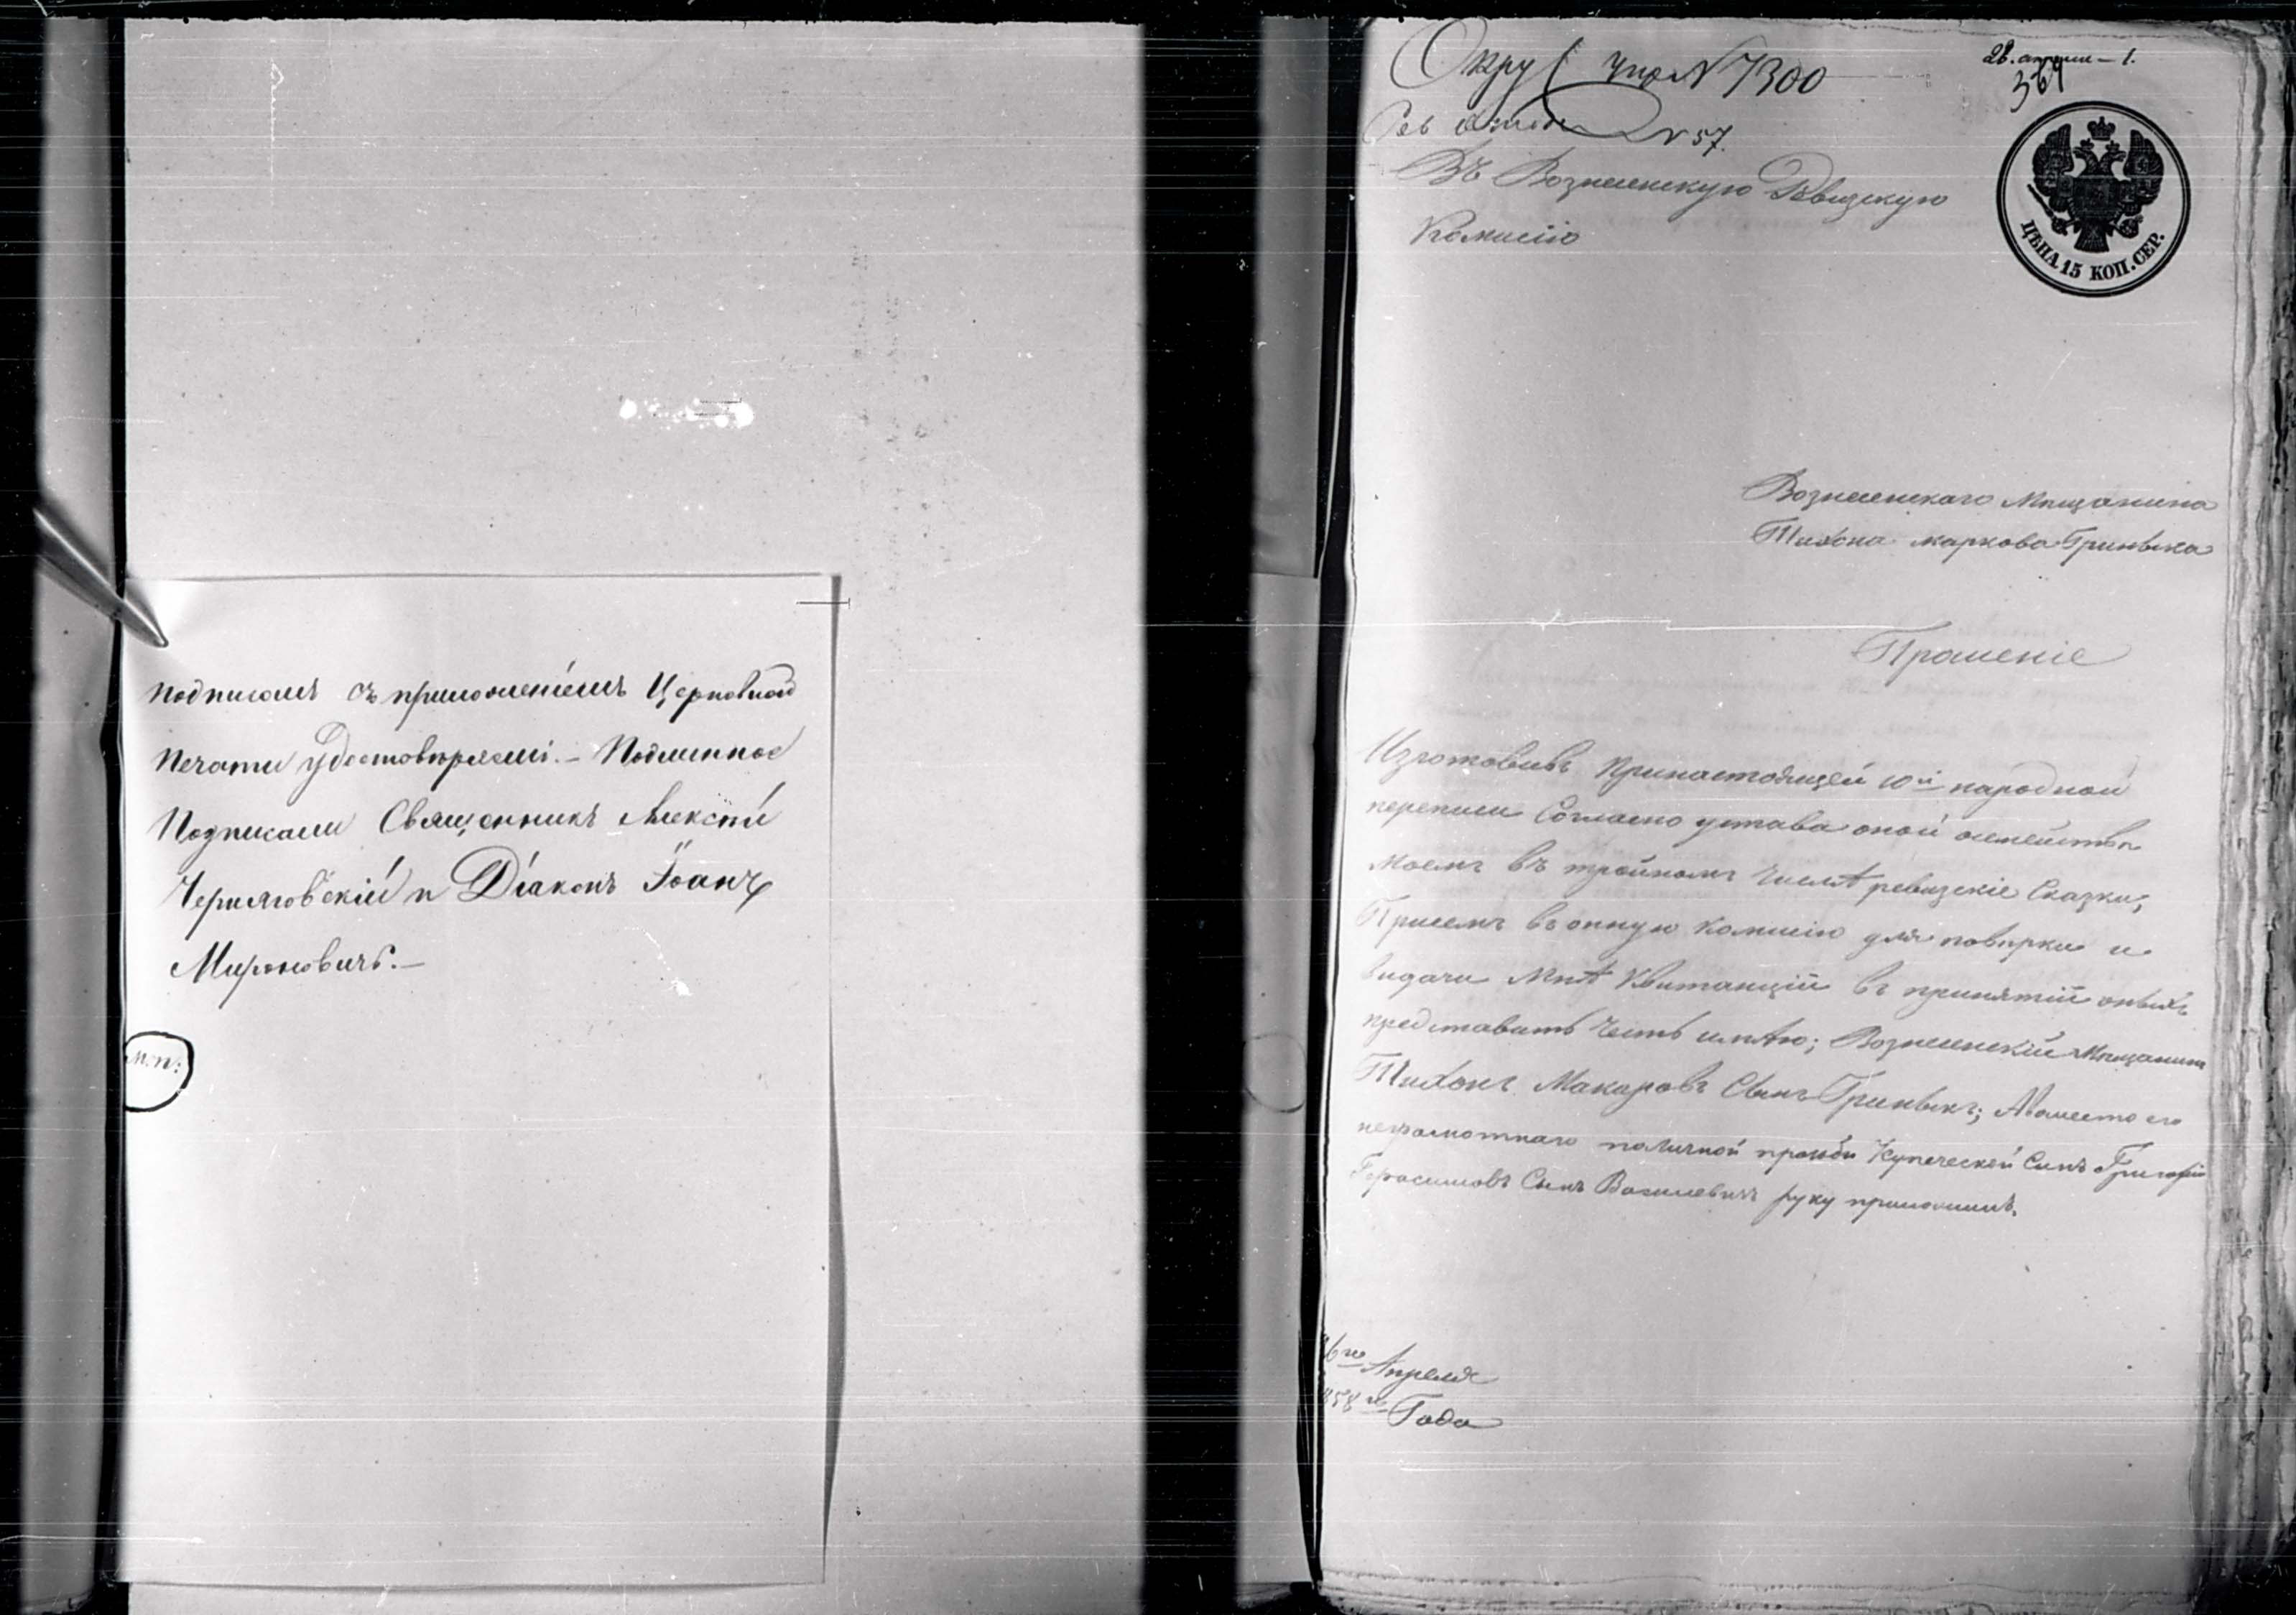 подписомъ съ приложеніемъ Церковной
печати удостовѣряемъ. – Подлинное
Подписали Священникъ Алексѣй
Черняговскій и Діаконъ Іоанъ
Мироновичъ. –
М.п:
28. апреля – 1.
364
№ 7300
№ 57.
Въ Вознесенскую Ревизскую
Комисію
ЦѢНА 15 КОП. СЕР.
Вознесенскаго Мѣщанина
Тихона маркова Гриневка
Прошеніе
Изготовивъ Принастоящей 10й народной
переписи Согласно устава оной осемействѣ
моемъ въ тройномъ числѣ ревизскіе Сказки,
При семъ въ оную комисію для повѣрки и
видачи Мнѣ Квитанціи въ принятій оныхъ
представить Честь имѣю; Вознесенскій Мѣщанинъ
Тихонъ Макаровъ Сынъ Гриневкъ; Авместо его
неграмотнаго поличной прозби Купеческой Синъ Григорій
Герасимовъ Сынъ Василевичъ руку приложилъ.
6го Апреля
858го Года